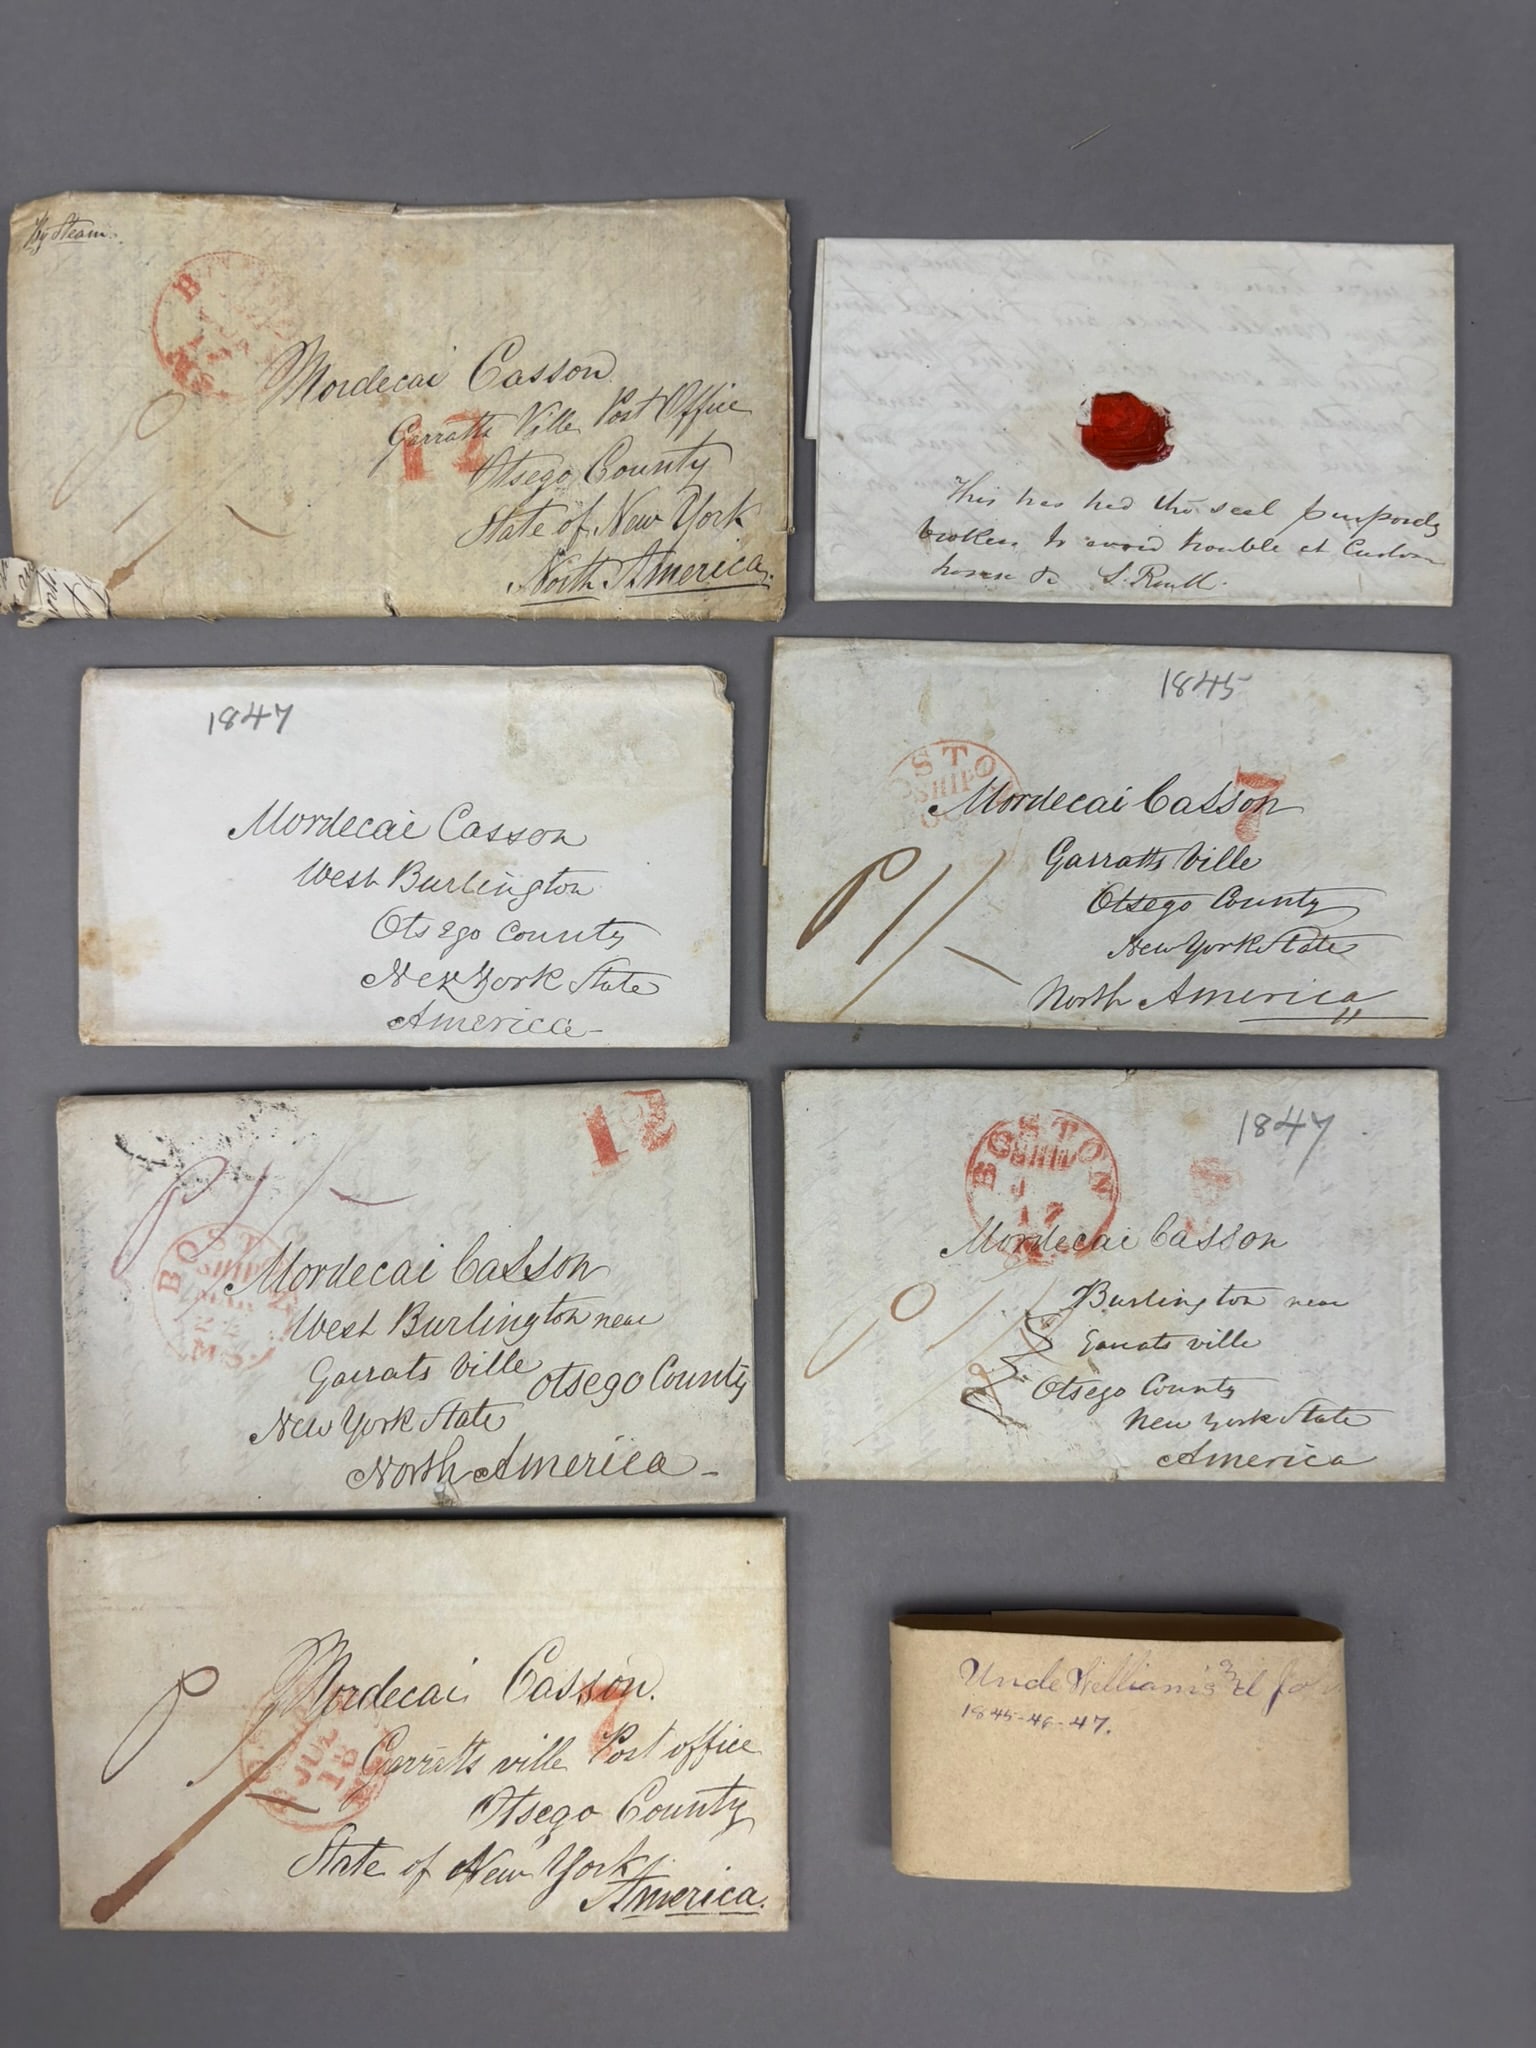 By Steam.
B
Mordecai Casson
Garratts Ville Post Office
12
Otsego County
State of New York
North America.
This has had the seal purposely
broken to avoid trouble at Custom
house
1847
Mordecai Casson
West Burlington
Otsego County
New York State
America
1845
BOSTO
SHIP
7
Mordecai Casson
Garratts Ville
P 1/-
Otsego County
New York State
North America
12
P 1/-
BOST
SHIP
Mordecai Casson
West Burlington near
Garrats Ville Otsego County
New York State
North America
1847
BOSTON
SHIP
J
17
Mordecai Casson
Burlington near
Garrats ville
Otsego County
New York State
America
Mordecai Casson.
7
P 1/-
JUL
18
Garratts ville Post office
Otsego County
State of New York
America.
Uncle William's
1845-46-47.